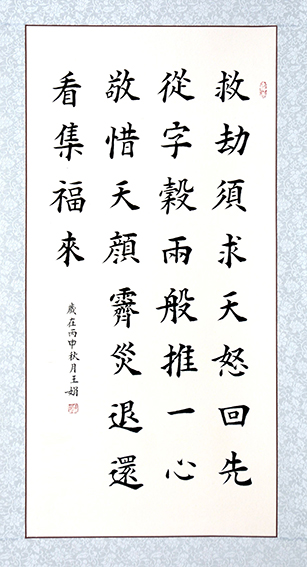 救劫須求天怒回先
從字穀兩般推一心
敬惜天顏霽災退還
看集福來
歲在丙申秋月王娟